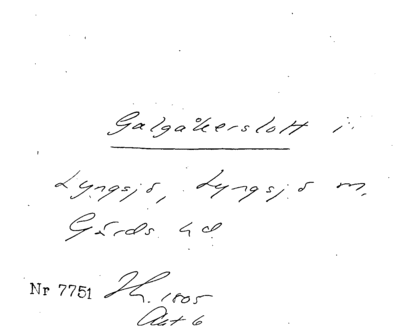 Galgåkerslott i
Lyngsjö, Lyngsjö m.
Gärds hd
Nr 7751 Jh. 1805
Akt 6